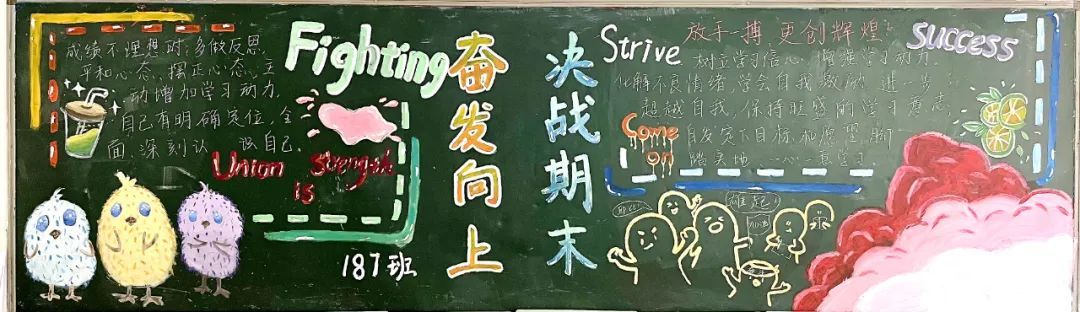 成绩不理想时:多做反思,
平和心态、摆正心态,主
动增加学习动力.
自己有明确定位,全
面、深刻认识自己.
Fighting
Union strength
is
187班
奋发向上
决战期末
Strive
放手一搏,更创辉煌
success
树立学习信心,增强学习动力.
化解不良情绪,学会自我激励,进一步
超越自我,保持旺盛的学习意志,
Come
on
自发定下目标和愿望,脚
踏实地,一心一意学习.
雄起!
加油